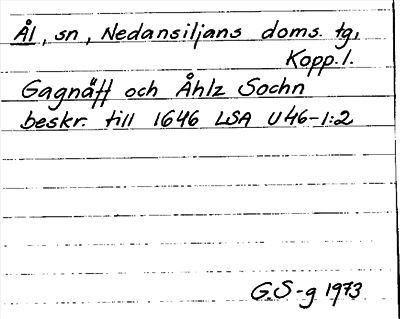 Ål, sn, Nedansiljans doms. tg,
Kopp. l.
Gagnäff och Åhlz Sochn
beskr. till 1646 LSA U46-1:2
G.S-g 1973